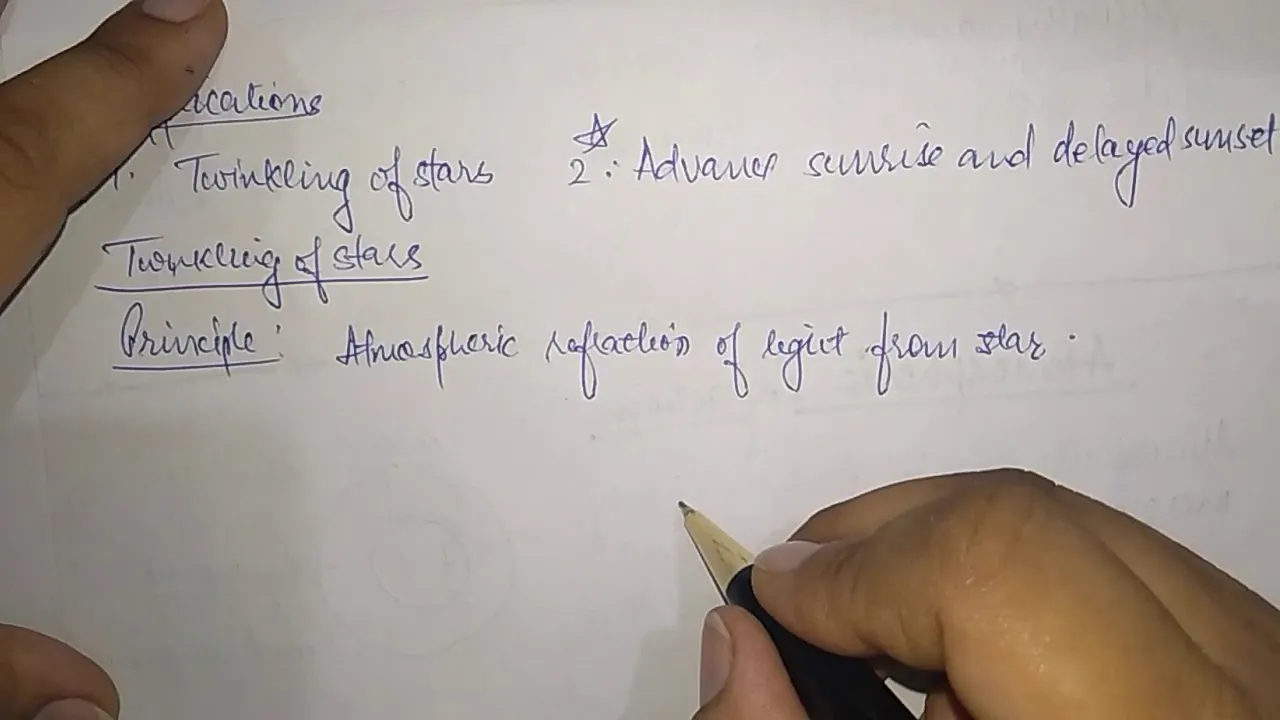 Applications
1. Twinkling of stars 2: Advance sunrise and delayed sunset
Twinkling of stars
Principle: Atmospheric refraction of light from star.